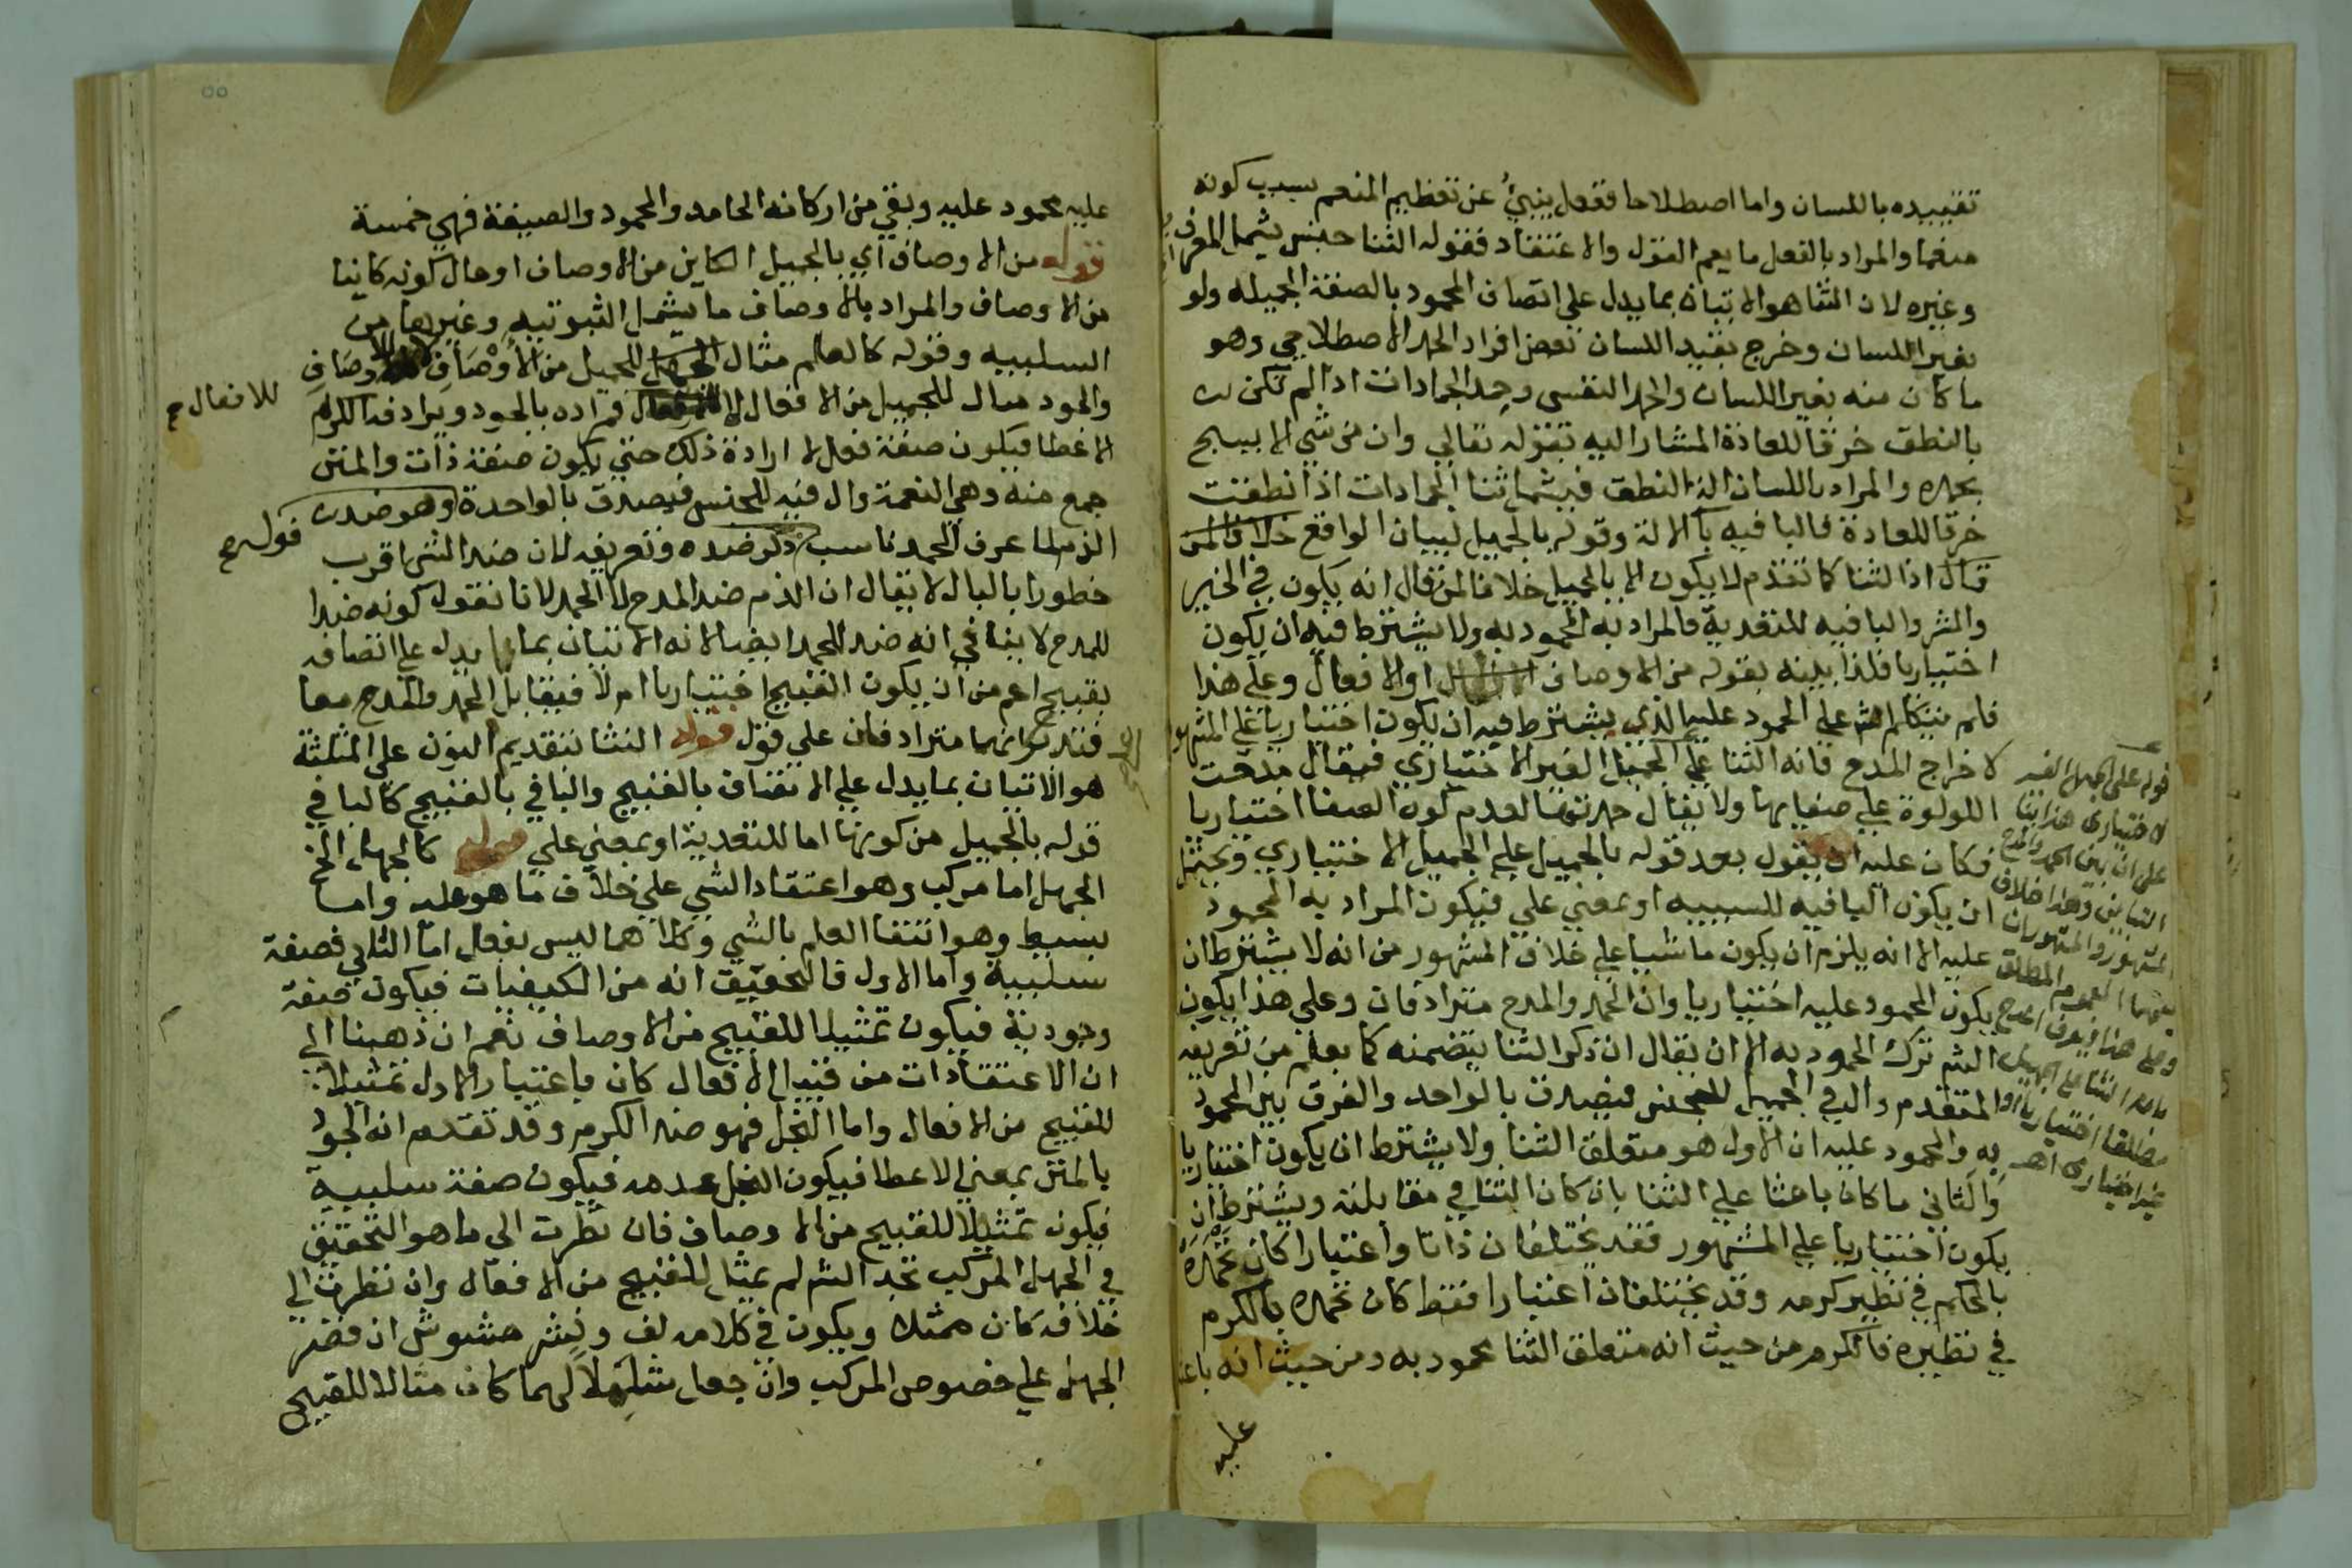 تقييده باللسان واما اصطلاحا ففعل ينبئ عن تعظيم المنعم بسبب كونه
منعما والمراد بالفعل ما يعم القول والاعتقاد فقوله الثنا جنس يشمل المعرف
وغيره لان الثنا هو الاتيان بما يدل على اتصاف المحمود بالصفة الجميلة ولو
بغير اللسان وخرج بقيد اللسان بعض افراد الحمد الاصطلاحي وهو
ما كان منه بغير اللسان والحمد النفسي وحمد الجمادات اذا لم تكن
بالنطق خرقا للعادة المشار اليه بقوله تعالي وان من شي الا يسبح
بحمده والمراد باللسان الة النطق فيشمل ثنا الجمادات اذا نطقت
خرقا للعادة فالبا فيه با الالة وقوله بالجميل لبيان الواقع خلافا لمن
قال اذ الثنا كما تقدم لا يكون الا بالجميل خلافا لمن قال انه يكون في الخير
والشر والبا فيه للتعدية فالمراد به المحمود به ولا يشترط فيه ان يكون
اختياريا فلذا بينه بقوله من الاوصاف او الافعال وعلي هذا
فلم يتكلم الش علي المحمود عليه الذي يشترط فيه ان يكون اختياريا علي المشهور
لاخراج المدح فانه الثنا علي الجميل الغير الاختياري فيقال مدحت
اللولوة علي صفايها ولا يقال حمدتها لعدم كون الصفا اختياريا
فكان عليه ان يقول بعد قوله بالجميل علي الجميل الاختياري ويحتمل
ان يكون البا فيه للسببيه او بمعني علي فيكون المراد به المحمود
عليه الا انه يلزم ان يكون ماشيا علي خلاف المشهور من انه لا يشترط ان
يكون المحمود عليه اختياريا وان الحمد والمدح مترادفان وعلي هذا يكون
الش ترك المحمود به الا ان يقال ان ذكر الثنا يتضمنه كما يعلم من تعريفه
المتقدم وال في الجميل للجنس فيصدق بالواحد والفرق بين المحمود
به والمحمود عليه ان الاول هو متعلق الثنا ولا يشترط ان يكون اختياريا
والثاني ما كان باعثا علي الثنا بان كان الثنا في مقابلته ويشترط ان
يكون اختياريا علي المشهور فقد يختلفان ذاتا واعتبارا كان تحمده
بالحكم في نظير كرمه وقد يختلفان اعتبارا فقط كان تحمده بالكرم
في نظيره فالكرم من حيث انه متعلق الثنا محمود به ومن حيث انه باعث
عليه
قوله على الجميل الغير
الاختياري هذا بنا
على ان بين الحمد والمدح
التباين وهذا خلاف
المشهور والمشهور ان
بينهما العموم المطلق
وعلى هذا فيعرف المدح
بانه الثنا على الجميل
مطلقا اختياريا او
غير اختياري اهـ
٥٥
عليه محمود عليه وبقي من اركانه الحامد والمحمود والصيغة فهي خمسة
قوله من الاوصاف اي بالجميل الكاين من الاوصاف او حال كونه كاينا
من الاوصاف والمراد بالاوصاف ما يشمل الثبوتيه وغيرها من
السلبيه وقوله كالعلم مثال للجميل من الاوصاف
والجود مثال للجميل من الافعال فمراده بالجود ويرادفه الكرم
للافعال صح
الاعطا فيكون صفة فعل لا ارادة ذلك حتي يكون صفة ذات والمنن
جمع منة وهي النعمة وال فيه للجنس فيصدق بالواحدة وهو ضد
قوله صح
الذم لما عرف الحمد ناسب ذكر ضده وتعريفه لان ضد الشي اقرب
خطورا بالبال لا يقال ان الذم ضد المدح لا الحمد لانا نقول كونه ضدا
للمدح لا ينافي انه ضد للحمد ايضا لانه الاتيان بما يدل علي اتصافه
بقبيح اعم من ان يكون القبيح اختياريا ام لا فيقابل الحمد والمدح معا
فتدبر انهما مترادفان علي قول قوله النثا بتقديم النون علي المثلثة
هو الاتيان بما يدل علي الاتصاف بالقبيح والبا في بالقبيح كالبا في
قوله بالجميل من كونها اما للتعدية او بمعني علي قوله كالجهل الخ
الجهل اما مركب وهو اعتقاد الشي علي خلاف ما هو عليه واما
بسيط وهو انتفا العلم بالشي وكلاهما ليس بفعل اما الثاني فصفة
سلبية واما الاول فالتحقيق انه من الكيفيات فيكون صفة
وجودية فيكون تمثيلا للقبيح من الاوصاف نعم ان ذهبنا الي
ان الاعتقادات من قبيل الافعال كان باعتبار الاول تمثيلا
للقبيح من الافعال واما البخل فهو ضد الكرم وقد تقدم انه الجود
بالمنن بمعني الاعطا فيكون البخل عدمه فيكون صفة سلبية
فيكون تمثيلا للقبيح من الاوصاف فان نظرت الي ما هو التحقيق
في الجهل المركب تجد الش لم يمثل للقبيح من الافعال وان نظرت الي
خلافه كان ممثلا ويكون في كلامه لف ونشر مشوش ان قصر
الجهل علي خصوص المركب وان جعل شاملا لهما كان مثالا للقبيح